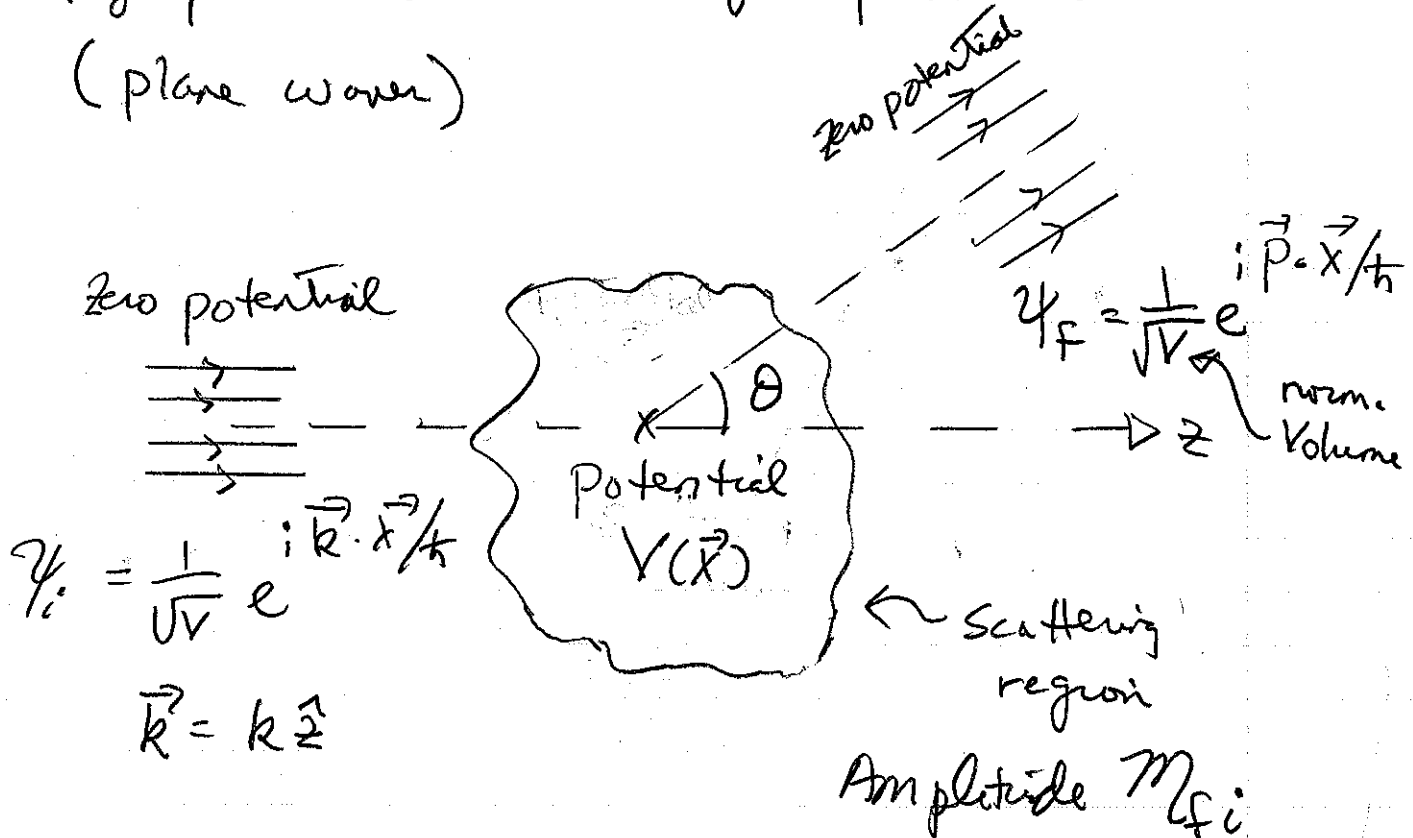 (plane waves)
zero potential
zero potential
ψ_f = 1/√V e^{i p⃗·x⃗/ħ}
norm.
Volume
θ
x
z
Potential
V(x⃗)
ψ_i = 1/√V e^{i k⃗·x⃗/ħ}
k⃗ = k ẑ
Scattering
region
Amplitude M_{fi}